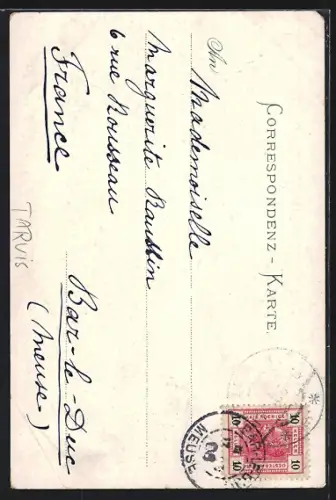 CORRESPONDENZ - KARTE.
An Mademoiselle
Marguerite Raussin
6 rue Rousseau
Bar-le-Duc
(Meuse)
France
TARVIS
10 10
10 10
MEUSE